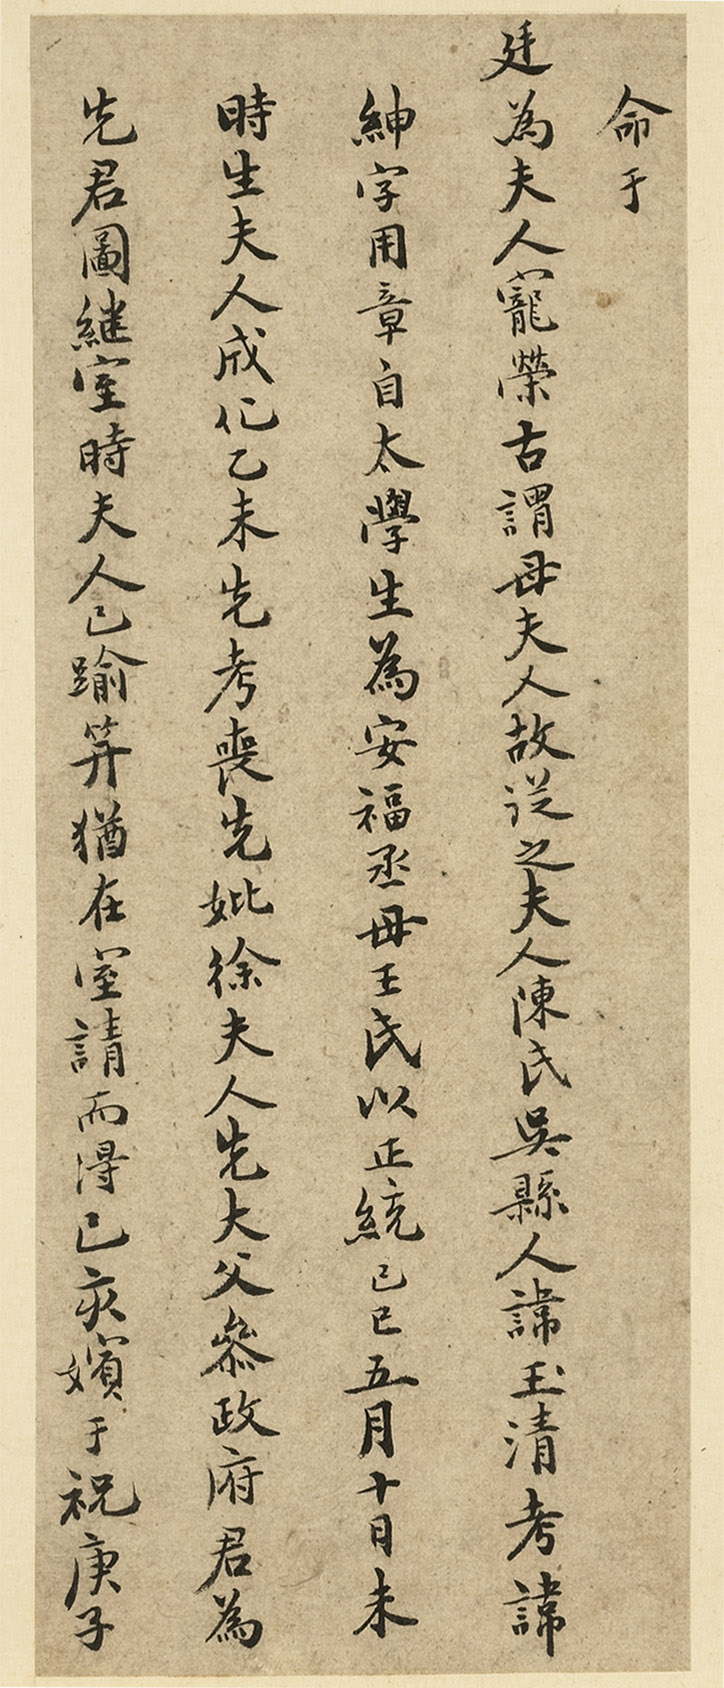 命于
廷為夫人寵榮古謂母夫人故從之夫人陳氏吳縣人諱玉清考諱
紳字用章自太學生為安福丞母王氏以正統己巳五月十日未
時生夫人成化乙未先考喪先妣徐夫人先大父叅政府君為
先君圖継室時夫人已踰笄猶在室請而得己亥嬪于祝庚子